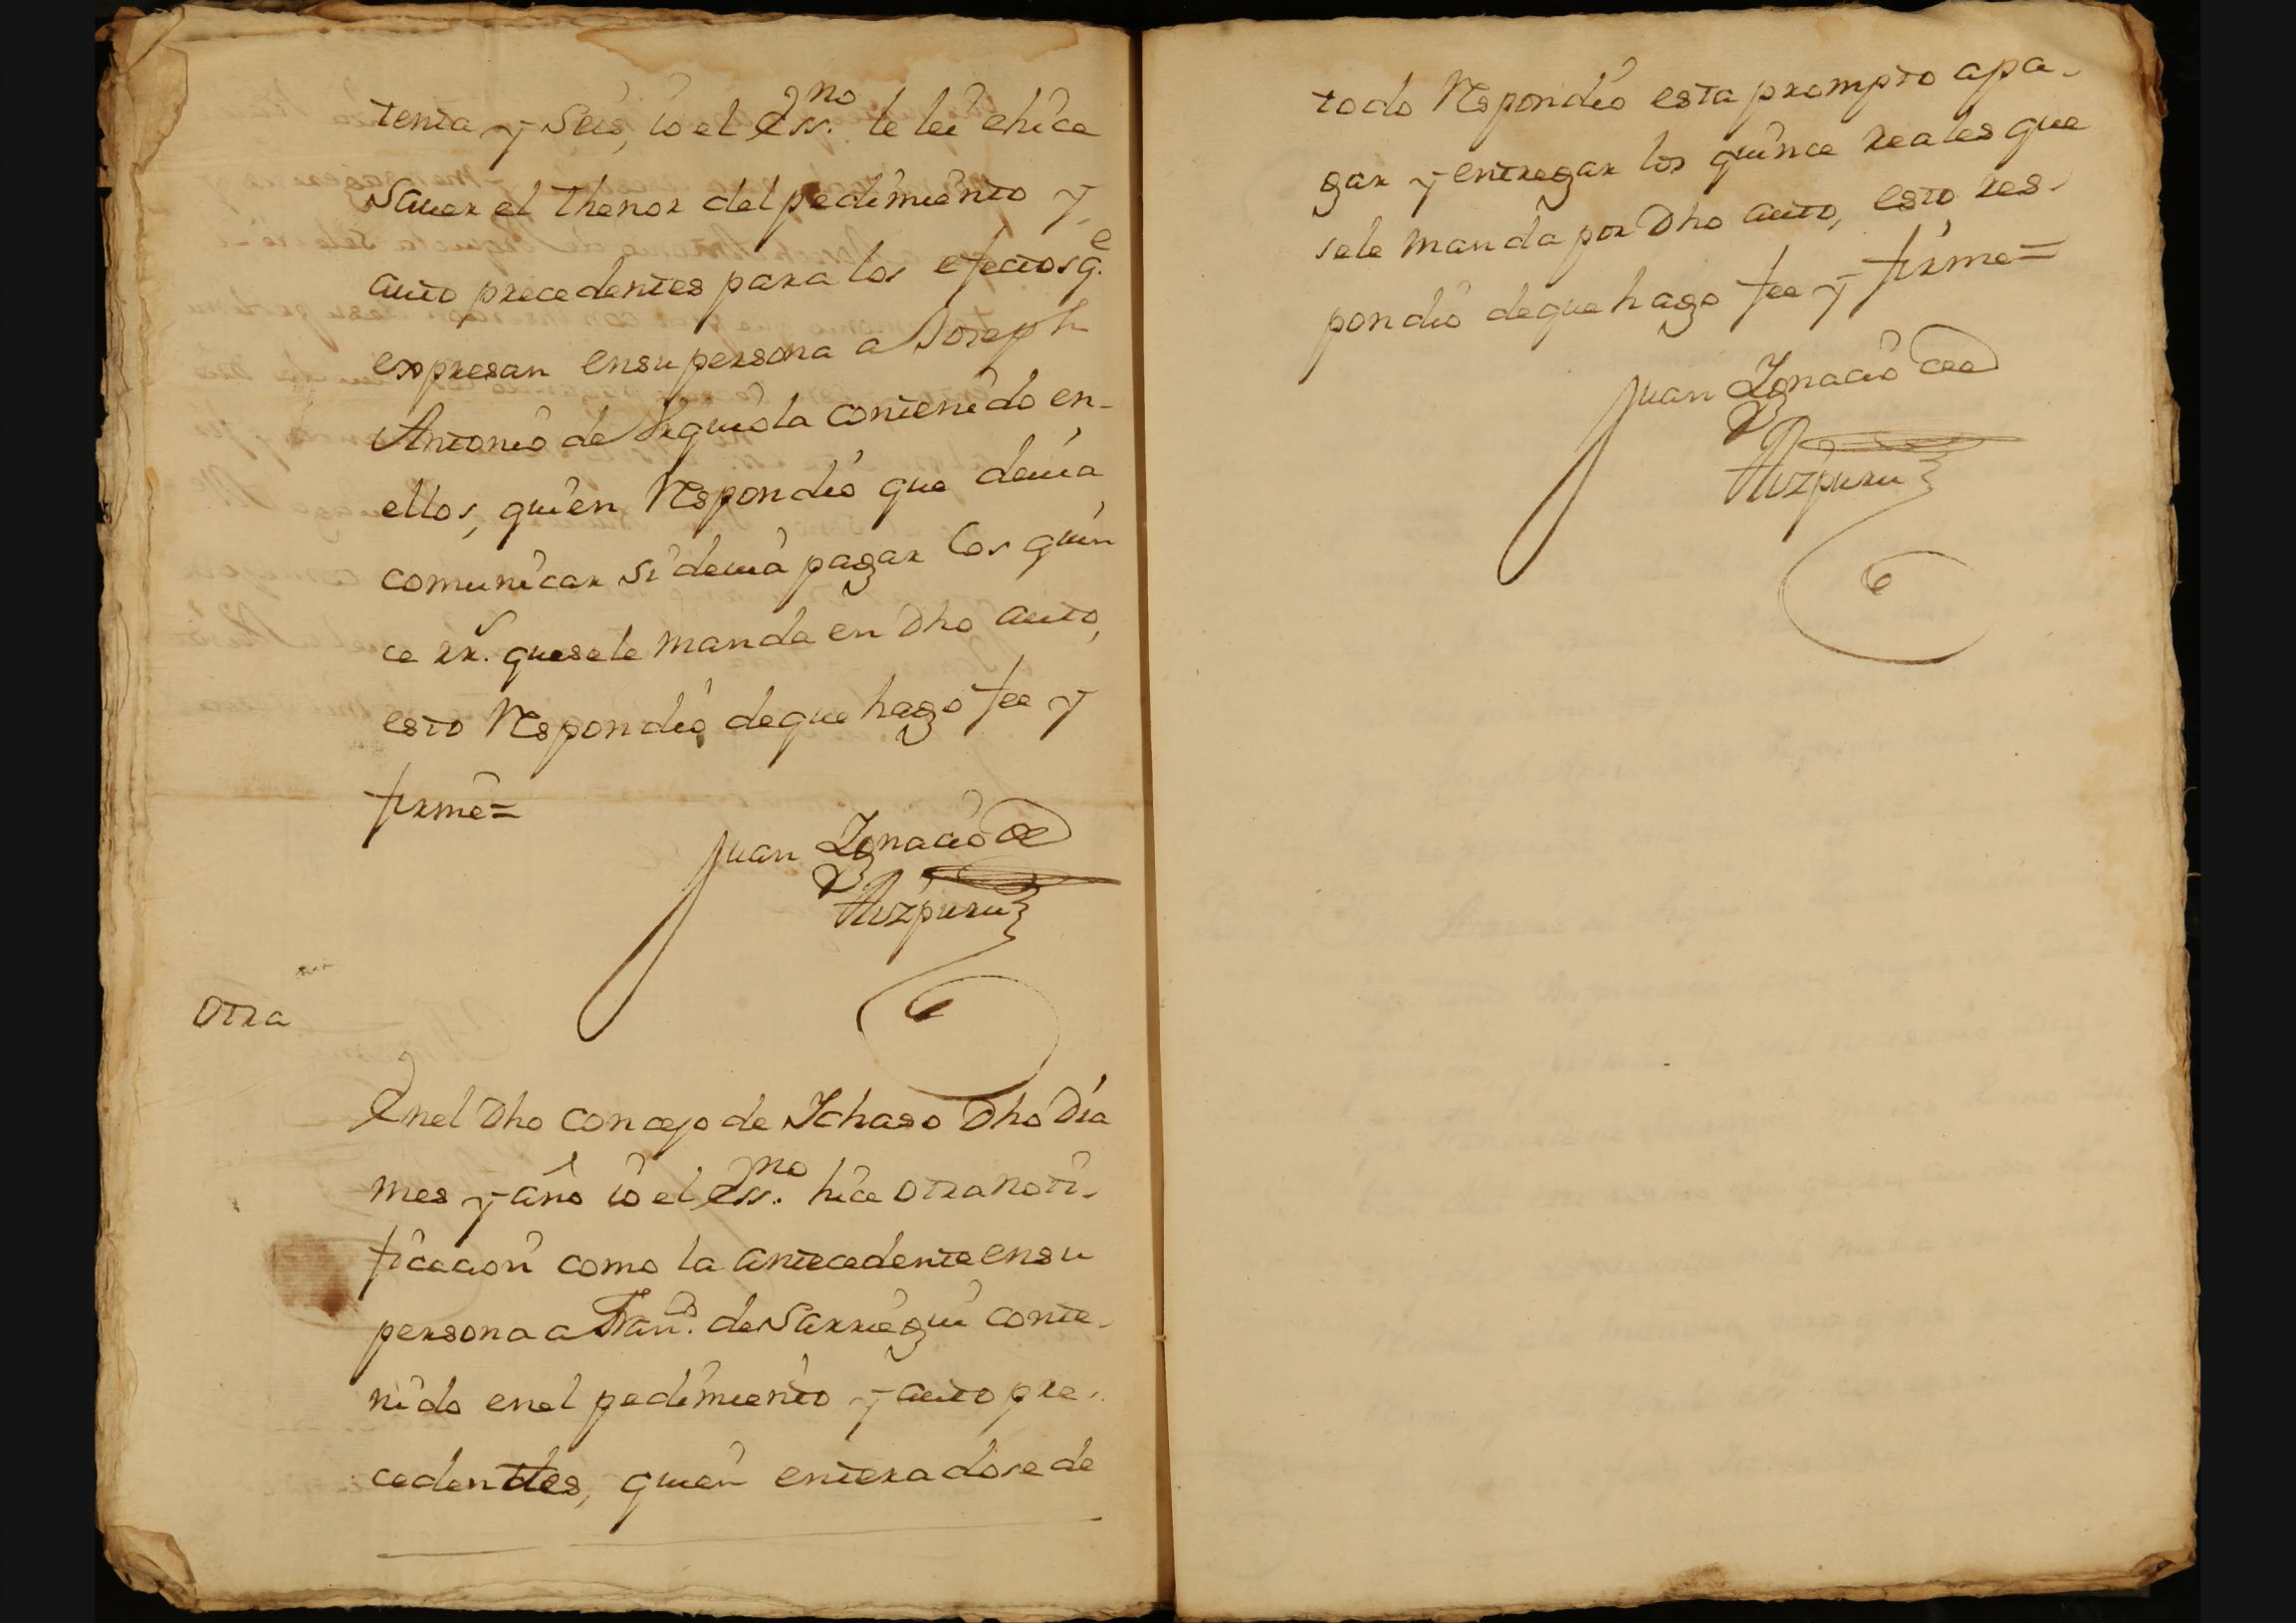 tenta y Seis, io el Ess.no le lei ehice
Sauer el thenor del pedimiento y
auto precedentes para los efectos q.e
expresan ensu persona a Joseph
Antonio de Urquiola contenido en-
ellos, quien Respondio que deuia
comunicar si deuia pagar los quin
ce rr.s quesele manda en Dho auto,
esto Respondio, deque hago fee y
firmé=
Juan Ignacio de
Aizpuru
Otra
Enel Dho concejo de Ichaso Dho Dia
mes y año io el Ess.no hice otra noti-
ficacion como la antecedente ensu
persona a Fran.co de Sarriegui conte-
nido enel pedimiento y auto pre-
cedenttes, quien enteradose de
todo Respondio esta prompto apa-
gar y entregar los quince reales que
sele manda por Dho auto, esto res-
pondio deque hago fee y firme=
Juan Ignacio de
Aizpuru